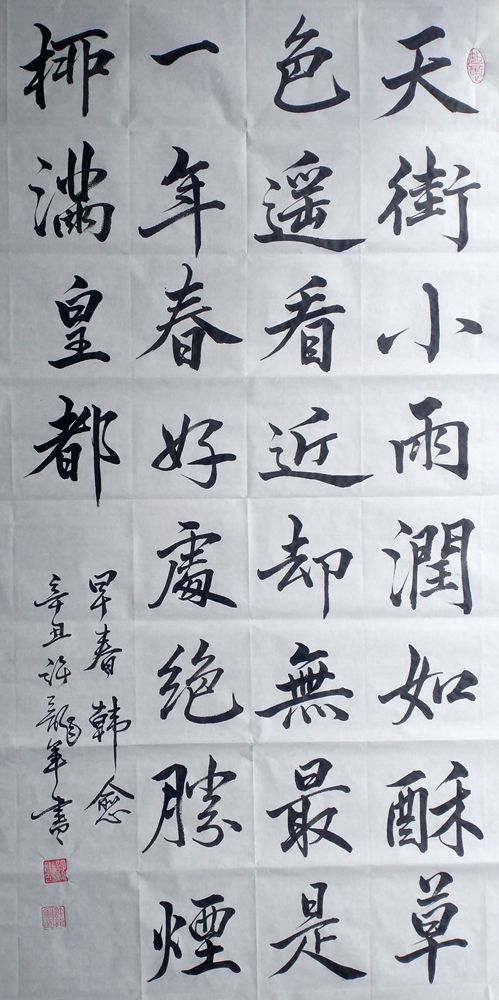 天街小雨潤如酥草
色遥看近却無最是
一年春好處绝勝煙
柳滿皇都
早春 韩愈
辛丑许龙年書